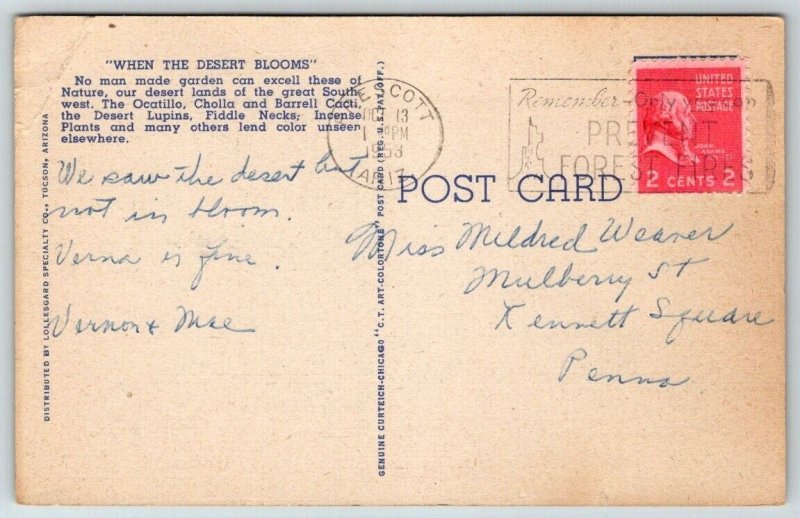 "WHEN THE DESERT BLOOMS"
No man made garden can excell these of
Nature, our desert lands of the great South
west. The Ocatillo, Cholla and Barrell Cacti,
the Desert Lupins, Fiddle Necks; Incense
Plants and many others lend color unseen
elsewhere.
We saw the desert but
not in bloom.
Verna is fine.
Vernon & Mae
DISTRIBUTED BY LOLLESGARD SPECIALTY CO., TUCSON, ARIZONA
GENUINE CURTEICH-CHICAGO "C.T. ART-COLORTONE" POST CARD (REG. U.S. PAT. OFF.)
PRESCOTT
OCT 13
PM
1953
ARIZ.
Remember-Only you can
PREVENT
FOREST FIRES
UNITED
STATES
POSTAGE
JOHN
ADAMS
2 CENTS 2
POST CARD
Miss Mildred Weaver
Mulberry St
Kennett Square
Penna